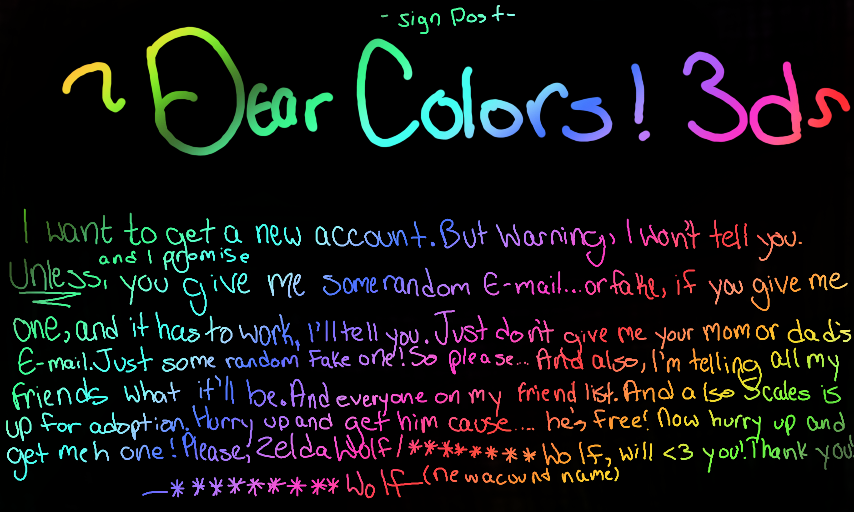 - Sign Post -
~ Dear Colors! 3ds ~
I want to get a new account. But Warning, I Won't tell you.
and I promise
Unless, you give me some random E-mail... or fake, if you give me
one, and it has to work, I'll tell you. Just don't give me your Mom or dad's
E-mail. Just some random Fake one! So please... And also, I'm telling all my
friends what it'll be. And everyone on my friend list. And also Scales is
up for adoption. Hurry up and get him cause.... he's free! Now hurry up and
get meh one! Please, Zelda Wolf/********Wolf, will <3 you! Thank you!
—********Wolf (new acound name)